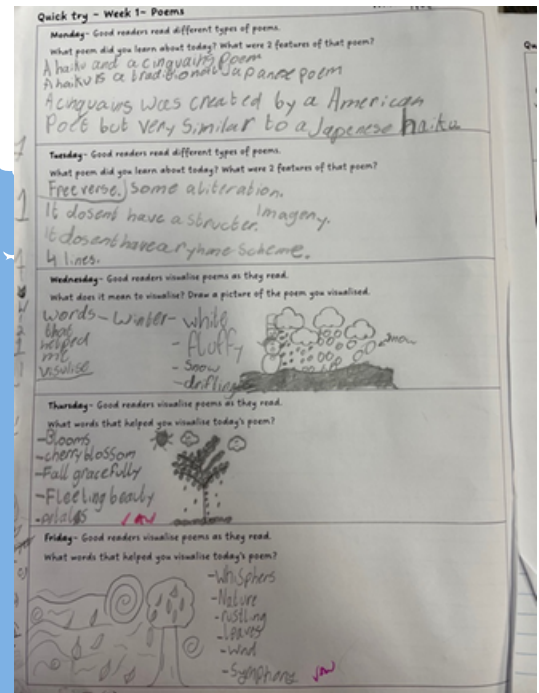 Quick try - Week 1- Poems
Monday- Good readers read different types of poems.
What poem did you learn about today? What were 2 features of that poem?
A haiku and a cinquains Poem
A haiku is a traditional Japanese poem
A cinquains was created by a American
Poet but very similar to a Japenese haiku
Tuesday- Good readers read different types of poems.
What poem did you learn about today? What were 2 features of that poem?
Free verse. Some aliteration.
It dosent have a structer. Imagery.
It dosent have a ryhme scheme.
4 lines.
Wednesday- Good readers visualise poems as they read.
What does it mean to visualise? Draw a picture of the poem you visualised.
words - Winter - white
that
helped - fluffy
me
visulise - Snow
- drifting
snow
Thursday- Good readers visualise poems as they read.
What words that helped you visualise today's poem?
-Blooms
-cherry blossom
-Fall gracefully
-Fleeting beauty
-petals
Friday- Good readers visualise poems as they read.
What words that helped you visualise today's poem?
-Whisphers
-Nature
-rustling
-leaves
-wind
-Symphone